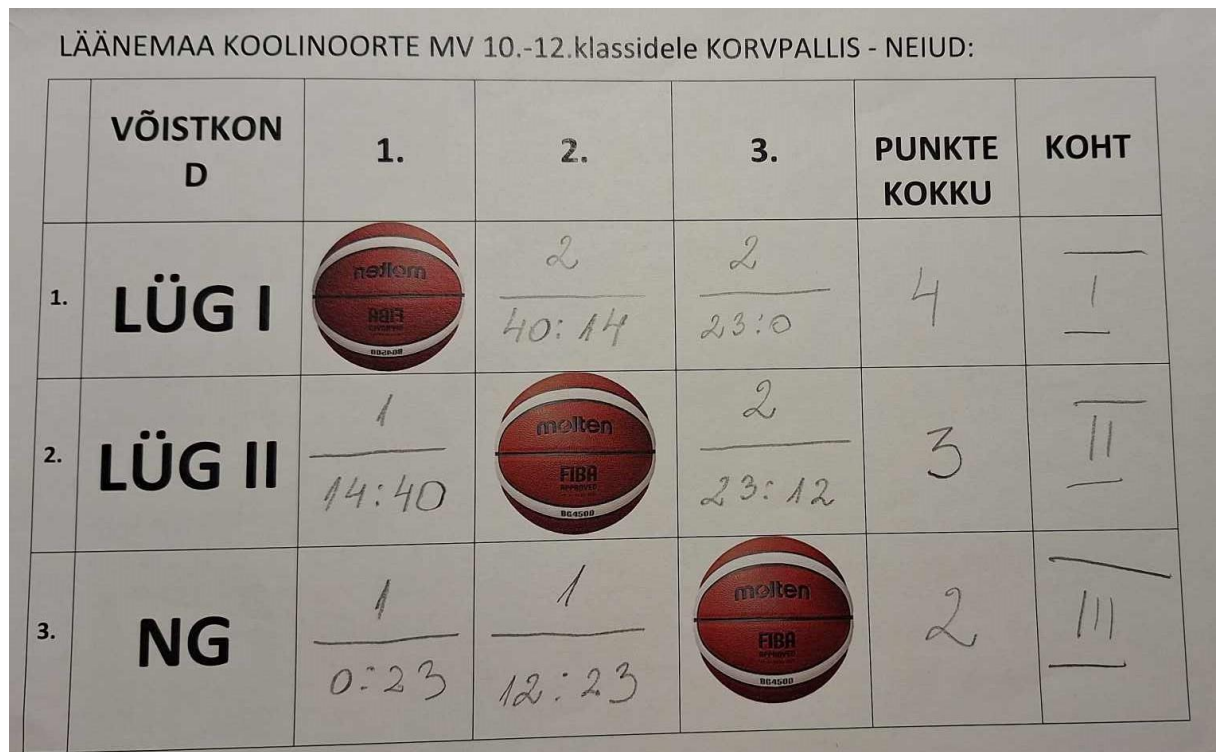 LÄÄNEMAA KOOLINOORTE MV 10.-12.klassidele KORVPALLIS - NEIUD:
VÕISTKON
D
1.
2.
3.
PUNKTE
KOKKU
KOHT
1.
LÜG I
molten
FIBA
APPROVED
BG4500
2
40:14
2
23:0
4
I
2.
LÜG II
1
14:40
molten
FIBA
APPROVED
BG4500
2
23:12
3
II
3.
NG
1
0:23
1
12:23
molten
FIBA
APPROVED
BG4500
2
III